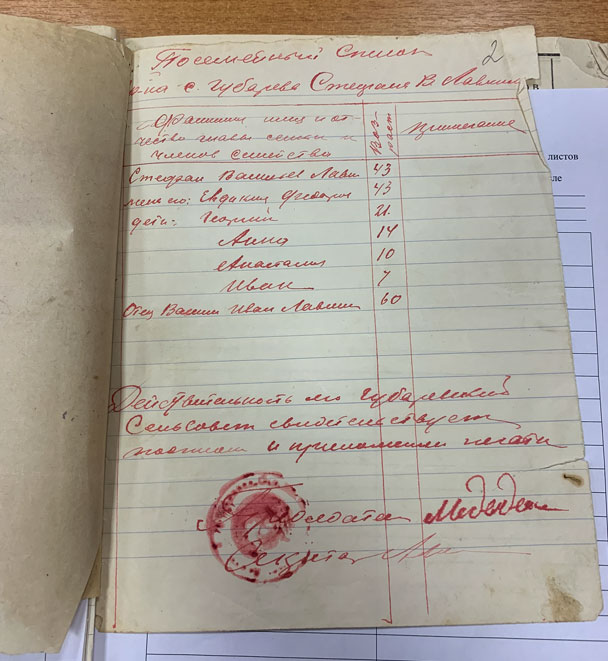 2
Посемейный Список
с. Губарева Стефана Ва Лавина
Фамилия имя и от-
чество главы семьи и
членов семейства
Воз-
раст
Примечание
Стефан Васильев Лавин 43
жена его: Евдакия Федоров 43
дети: Георгий 21.
Анна 14
Анастасия 10
Иван 7
Отец Васили Иван Лавин 60
Действительность его Губаревский
Сельсовет свидетельствует
и приложением печати
Секретар
листов